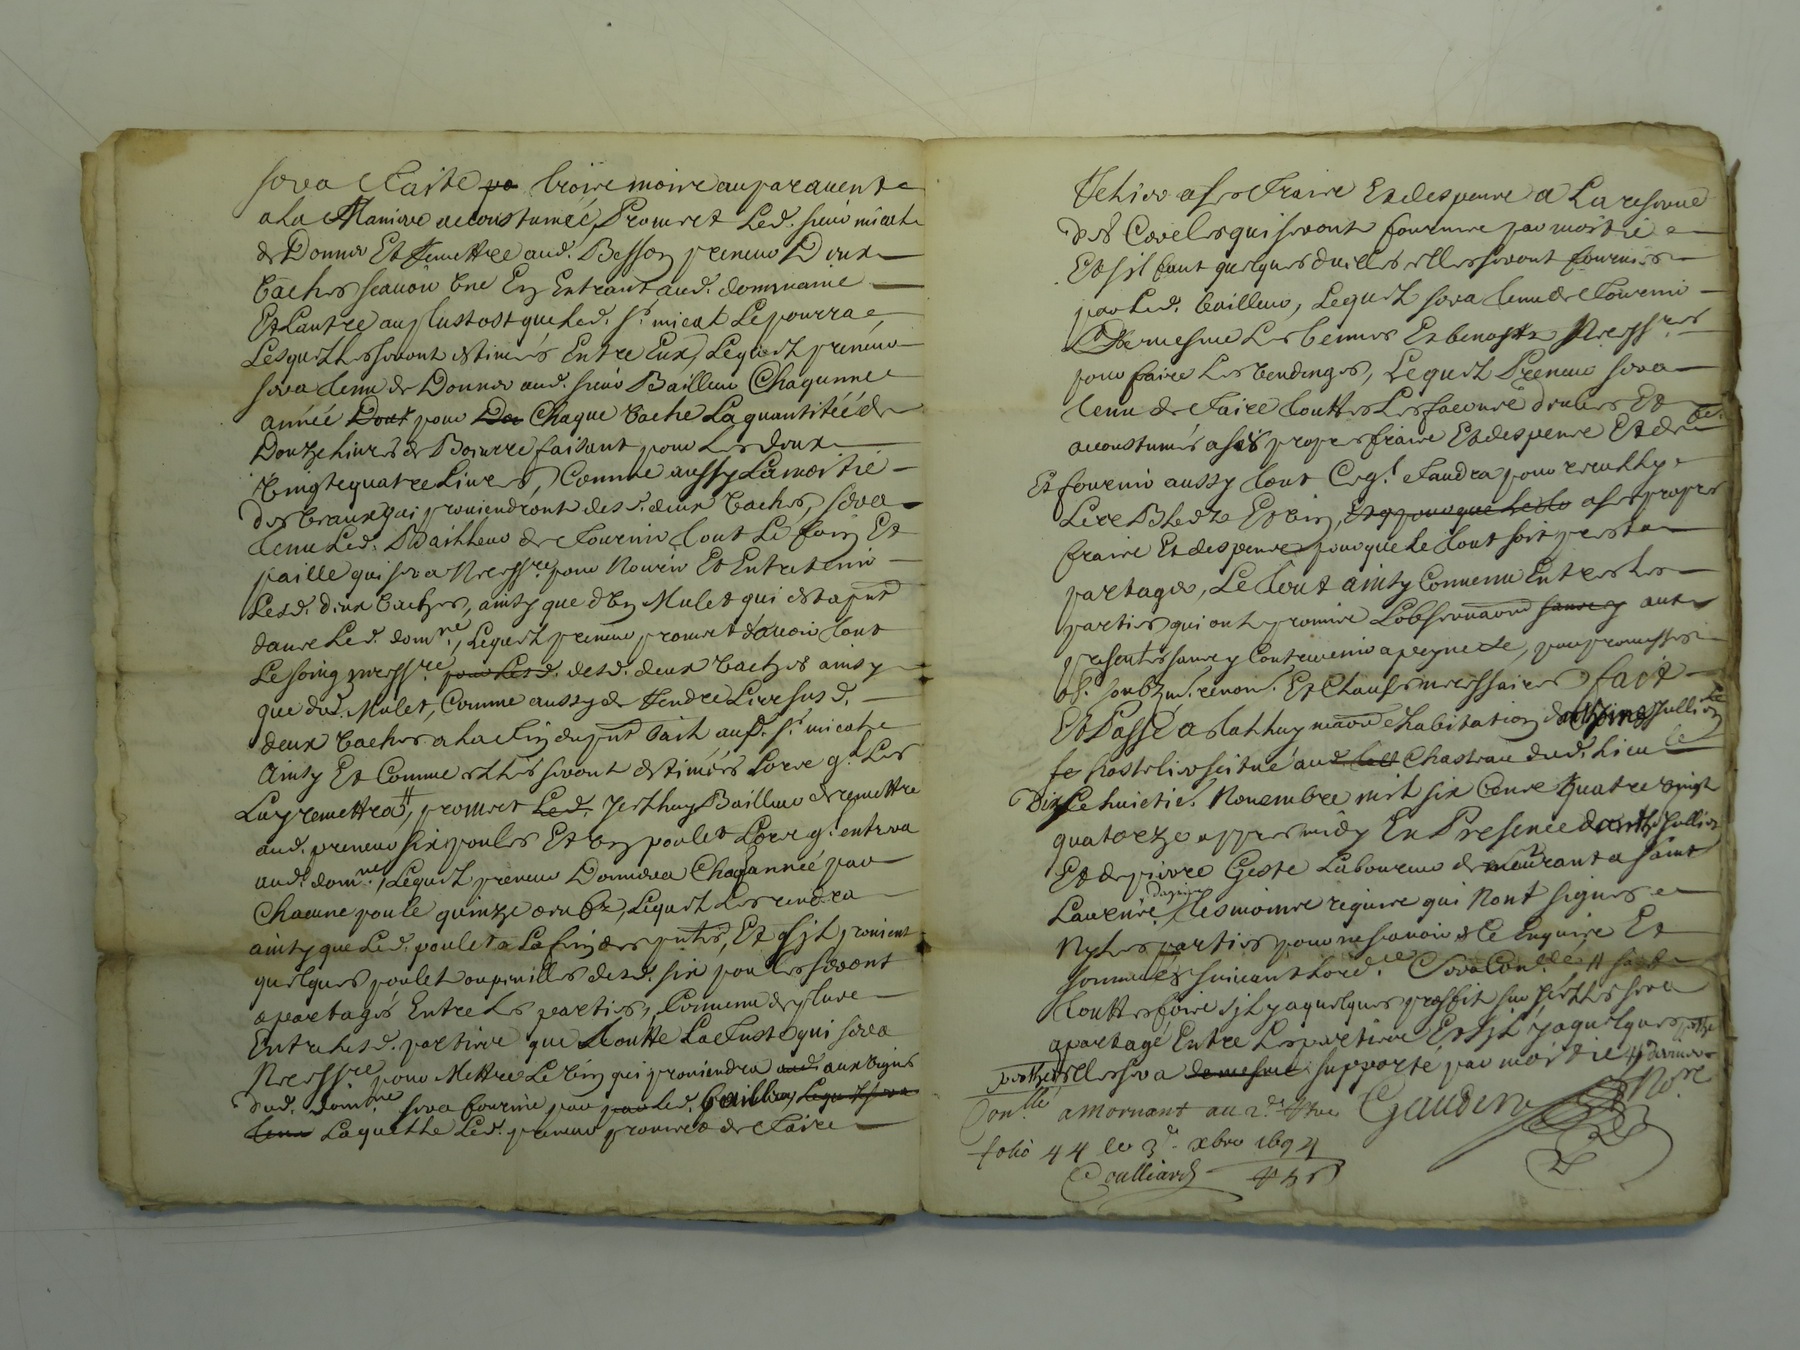 sera faite pa troise moire auparavent
a la Maniere accoustumée, Promet Led. sieur micol
de Donner Et Remettre aud. Besson preneur Deux
Vaches scavoir Une En Entrant aud. dommaine
Et Lautre au plustost que Led. sr. micol Le pourra,
Lesquelles seront estimés Entre Eux, Lequel preneur
sera tenu de Donner aud. sieur Bailleur Chaqunne
année Dont pour Chaque Vache La quantitéé de
Douze livres de Beurre faisant pour Les deux
Vingtequatre Livres, Comme aussy La moitié
des Veaux qui proviendront desd. deux Vaches, sera
tenu Led. Bailleur de fournir tout Le foin Et
paille qui sera Necessre. pour Nourir Et Entretenir
Lesd. deux Vaches, ainsy que d'Un Mulet qui est a pnt
dans Led. domne., Lequel preneur promet d'avoir tout
Le soing necessre. pour Lesd. desd. deux Vaches ainsy
que dud. Mulet, Comme aussy de Rendre Les susd.
deux Vaches a la fin du pnt Bail aud. sr. micol
Ainsy Et Comme Elles seront Estimées Lors q. Les
Luy remettra, promet Led. Bailleur de remettre
aud. preneur six poules Et Un poulet Lors q. entrera
aud. domne., Lequel preneur Donnera Chaq. année par
Chacune poule quinze œufz, Lequel Les rendra
ainsy que Led. poulet a La fin des pntes, Et sil provient
quelques poulet ou poulles desd. six poules seront
apartagés Entre Les parties, Convenu de plus
Entre Lesd. parties que toutte La fuste qui sera
Necessre. pour Mettre Le Vin qui proviendra aud. aux Vignes
dud. domne. sera fournie par par Led. bailleur, Lequel sera
tenu Laquelle Led. preneur promet de faire
Relier a ses fraix Et despens a La reserve
des Cercles qui seront fournis par moitié
Et sil faut quelques duelles elles seront fournies
par Led. bailleur, Lequel sera tenu de fournir
De mesme Les bennes Et benostes Necessres.
pour faire Les Vendanges, Lequel Preneur sera
tenu de faire touttes Les facons deubes Et
accoustumés a ses propres fraix Et despens Et de
Et fournir aussy tout Ce q. faudra pour recullyr
Les Bledz Et Vin, a ses propres
fraix Et despens pour que Le tout soit par La
partagés, Le tout ainsy Convenu Entre Les
parties qui ont promis Lobserver aux
presentes sans y Contrevenir a peyne de, par promesses
ob. soubzm. renon. Et Clauses necessaires, fait
Et Passé a maison d'habitation de Jullien
hostelier scitué au Chasteau dud. Lieu Le
Dix huictie. Novembre mil six Cens quatre vingt
quatorze appres midy En Presence de Jullien
Et de pierre Geste Laboureur demeurant a saint
Laurens dagnins, tesmoins requis qui Nont signés
Ny Les parties pour ne scavoir de Ce Enquis Et
sommées suivant Lord.ce sera Conllée
touttes fois sil y a quelques proffit sur jcelles sera
apartagé Entre Les parties Et sil y a quelques pertes
pertes Elles sera de mesme supporté par moitié
Conllé a Mornant au 2e. Gaudin Nore
folio 44 le 3e. xbre 1694
Coulliard